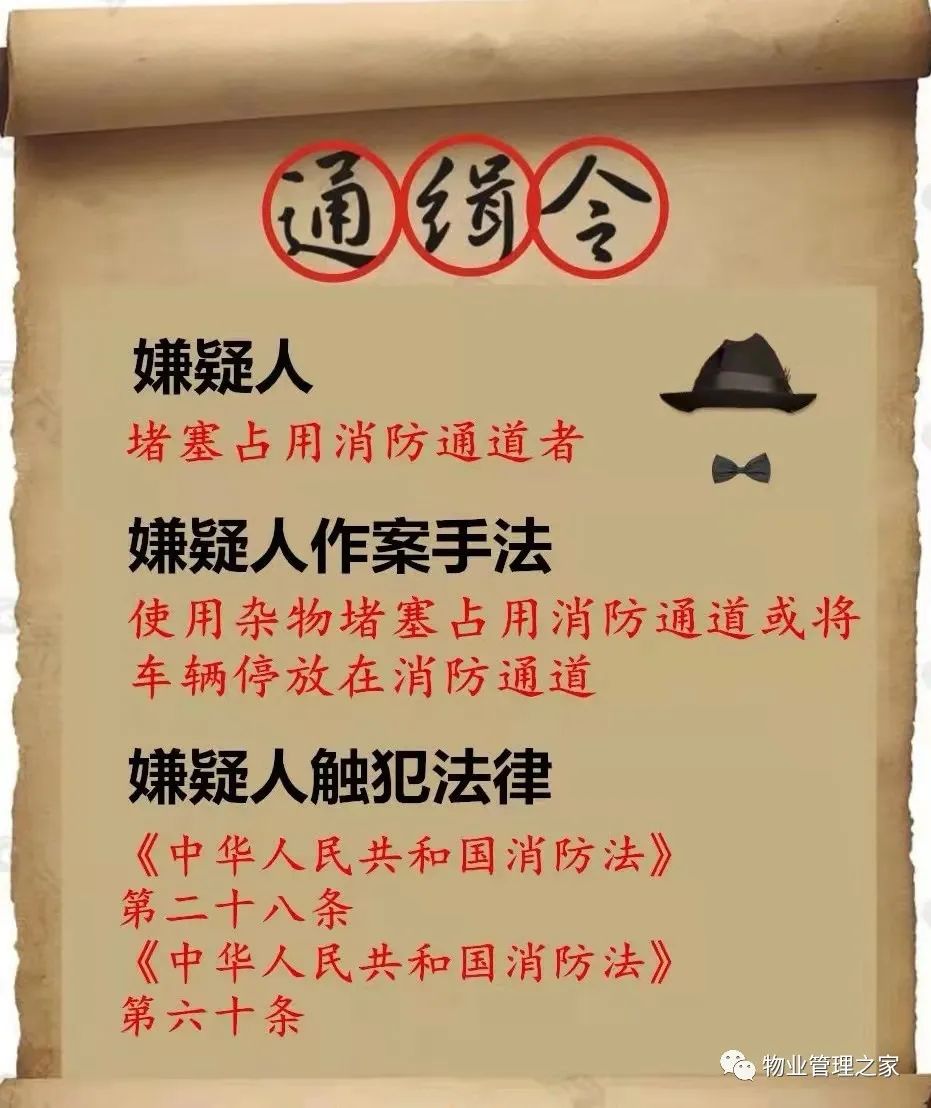 通缉令
嫌疑人
堵塞占用消防通道者
嫌疑人作案手法
使用杂物堵塞占用消防通道或将
车辆停放在消防通道
嫌疑人触犯法律
《中华人民共和国消防法》
第二十八条
《中华人民共和国消防法》
第六十条
物业管理之家